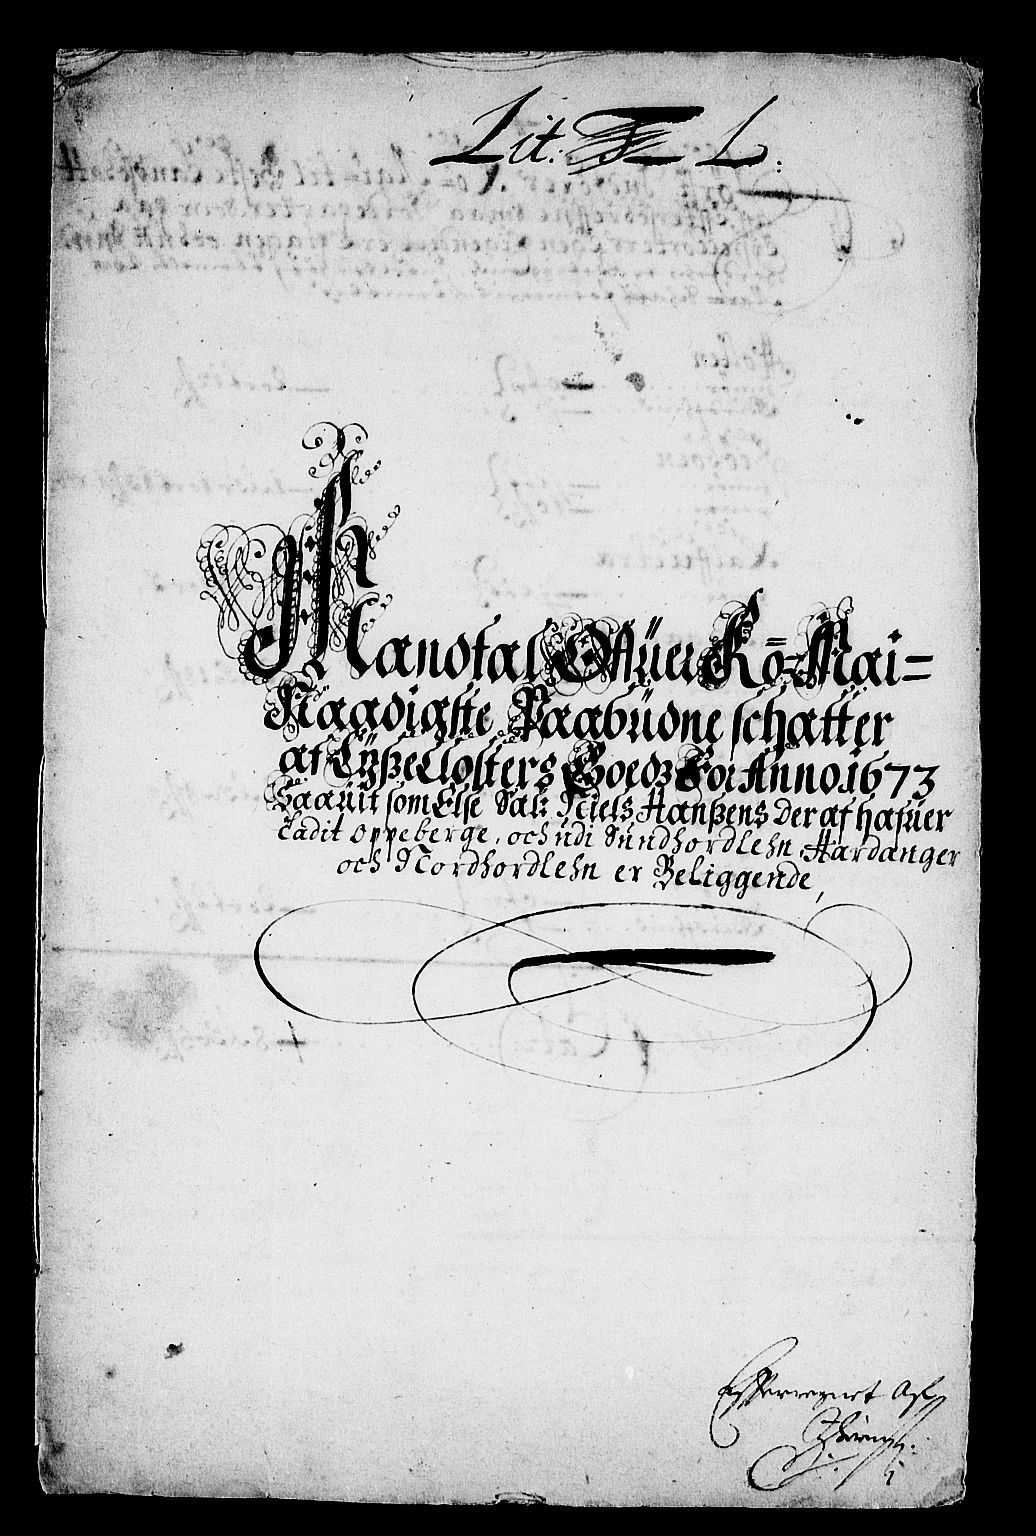 Lit: L:
Mandtal Offuer Kō= Mai=
Naadigste Paabudne schatter
af Lyße Closters Goedz For Anno 1673
Saauit som Else Sal: Niels Hanßens der af hafuer
ladit oppeberge, och udi Sundhordlehn, Hardanger
och Nordhordlehn er Beliggende,
Efterregnet Af